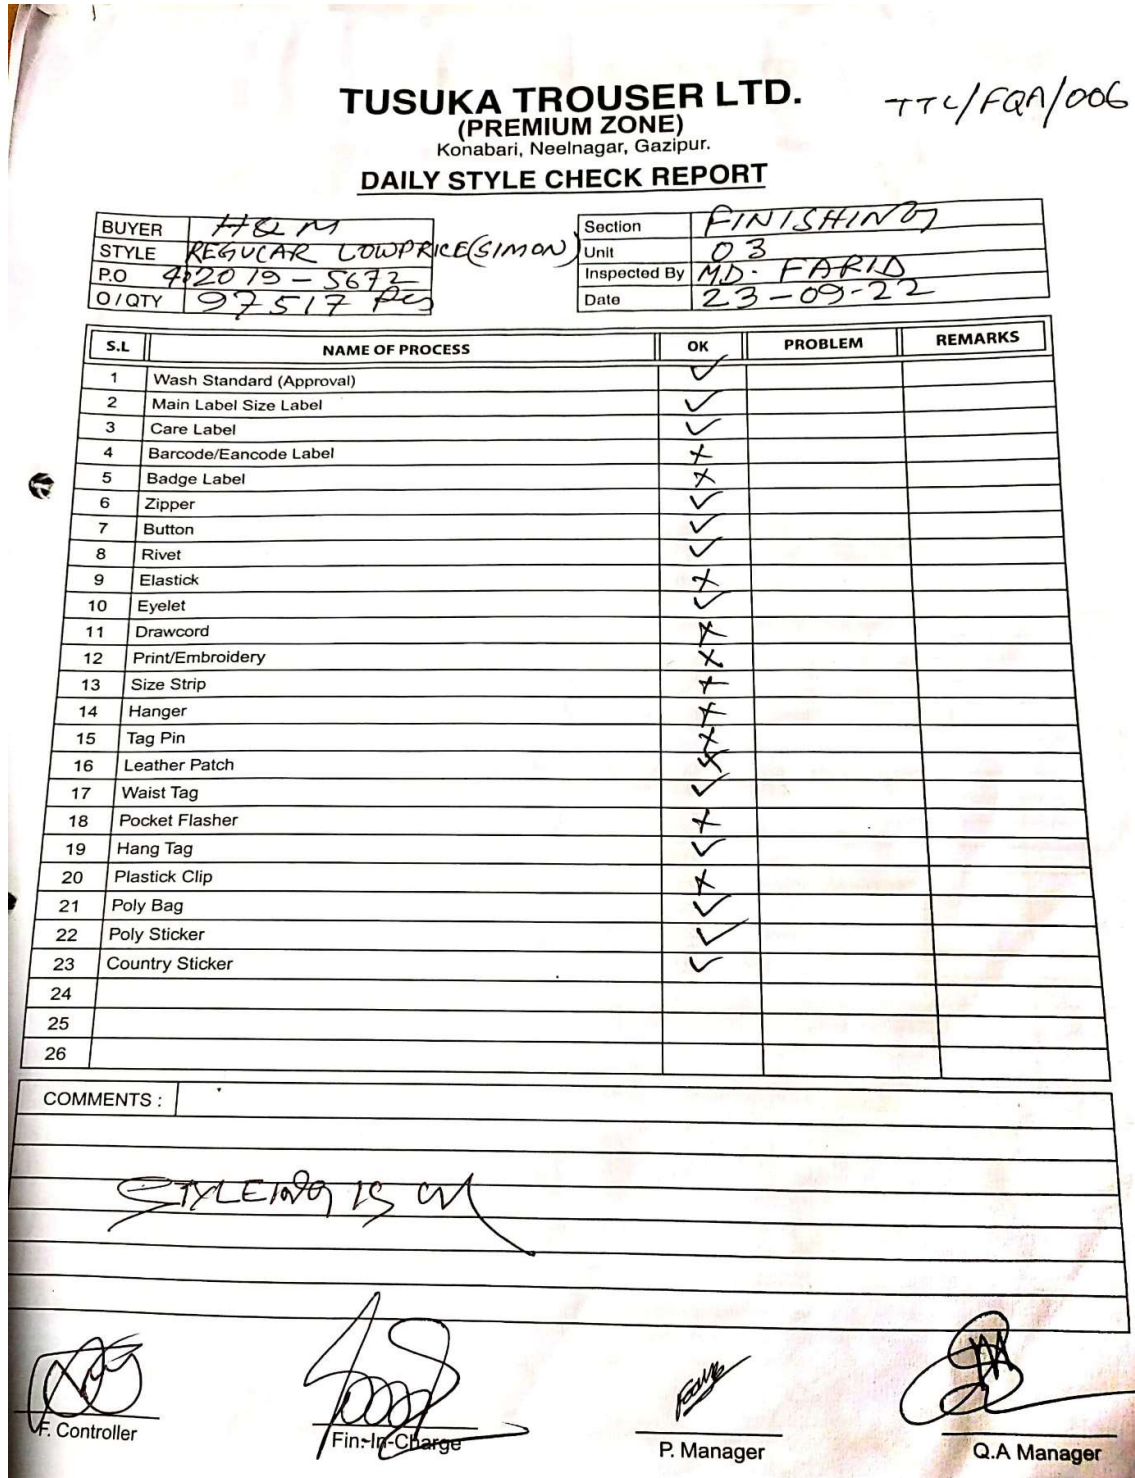 TUSUKA TROUSER LTD.
TTL/FQA/006
(PREMIUM ZONE)
Konabari, Neelnagar, Gazipur.
DAILY STYLE CHECK REPORT
BUYER H&M
STYLE REGULAR LOWPRICE(SIMON)
P.O 422019-5672
O/QTY 97517 Pcs
Section FINISHING
Unit 03
Inspected By MD. FARID
Date 23-09-22
S.L NAME OF PROCESS OK PROBLEM REMARKS
1 Wash Standard (Approval) ✓
2 Main Label Size Label ✓
3 Care Label ✓
4 Barcode/Eancode Label ✗
5 Badge Label ✗
6 Zipper ✓
7 Button ✓
8 Rivet ✓
9 Elastick ✗
10 Eyelet ✓
11 Drawcord ✗
12 Print/Embroidery ✗
13 Size Strip ✗
14 Hanger ✗
15 Tag Pin ✗
16 Leather Patch ✗
17 Waist Tag ✓
18 Pocket Flasher ✗
19 Hang Tag ✓
20 Plastick Clip ✗
21 Poly Bag ✓
22 Poly Sticker ✓
23 Country Sticker ✓
24
25
26
COMMENTS :
STYLEING IS OK
F. Controller
Fin:-In-Charge
P. Manager
Q.A Manager